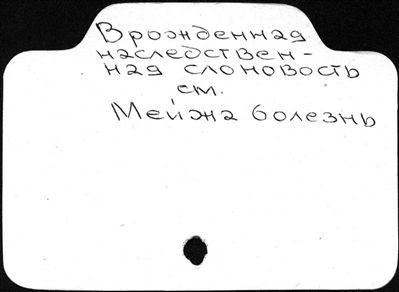 Врожденная
наследствен-
ная слоновость
см.
Мейжа болезнь